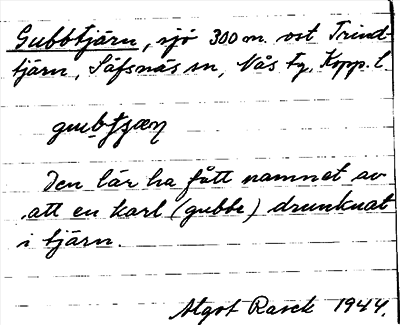 Gubbtjärn, sjö 300 m. ost Trind-
tjärn, Säfsnäs sn, Nås tg, Kopp. l.
Den lär ha fått namnet av
att en karl (gubbe) drunknat
i tjärn.
Algot Rasck 1944.